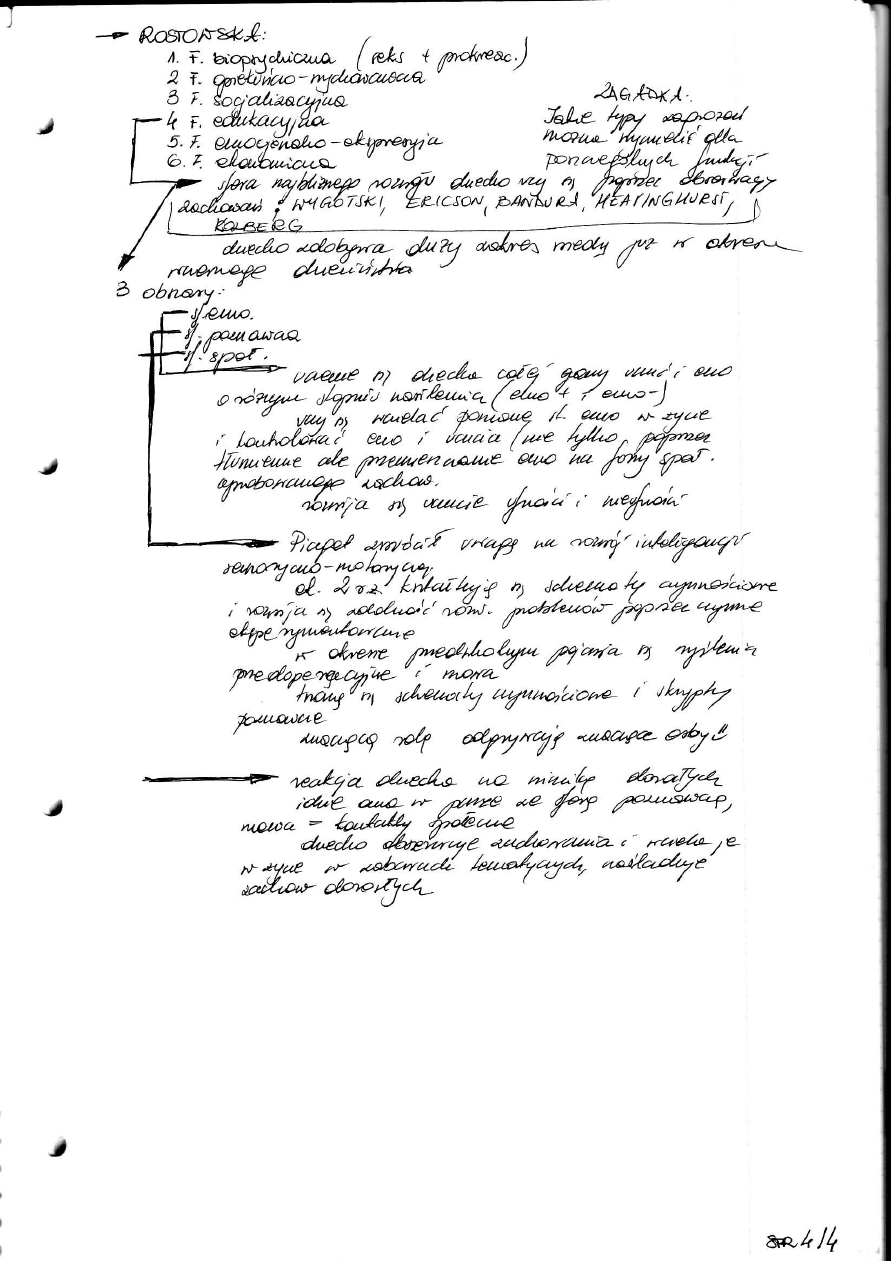 → ROSTOWSKA:
1. F. biopsychiczna (seks + prokreac.)
2 F. opiekuńczo-wychowawcza
3 F. socjalizacyjna
4 F. edukacyjna
5. F. emocjonalno-ekspresyjna
6. F. ekonomiczna
ZAGADKA:
Jakie typy zagrożeń
można wymienić dla
poszczególnych funkcji
sfera najbliższego rozwoju dziecko uczy się poprzez obserwację
zachowań: WYGOTSKI, ERICSON, BANDURA, HEAVINGHURST,
KOLBERG
dziecko zdobywa duży zakres wiedzy już w okresie
wczesnego dzieciństwa
3 obszary:
sf. emo.
sf. poznawcza
sf. społ.
uczenie się dziecka całej gamy uczuć i emo
o różnym stopniu nasilenia (emo + i emo-)
uczy się wcielać poniższe sf. emo w życie
i kontrolować emo i uczucia (nie tylko poprzez
tłumienie ale przemieszczanie emo na formy społ.
aprobowanego zachow.
rozwija się uczucie ufności i nieufności
Piaget zwrócił uwagę na rozwój inteligencji
sensoryczno-motorycznej.
ok. 2 rż. kształtują się schematy czynnościowe
i rozwija się zdolność rozw. problemów poprzez czynne
eksperymentowanie
w okresie przedszkolnym pojawia się myślenie
przedoperacyjne i mowa
tworzą się schematy czynnościowe i skrypty
poznawcze
znaczącą rolę odgrywają znaczące osoby!!
reakcja dziecka na mimikę dorosłych
idzie ona w parze ze sferą poznawczą,
mowa = kontakty społeczne
dziecko obserwuje zachowania i wciela je
w życie w zabawach tematycznych, naśladuje
zachow dorosłych
STR 4/4